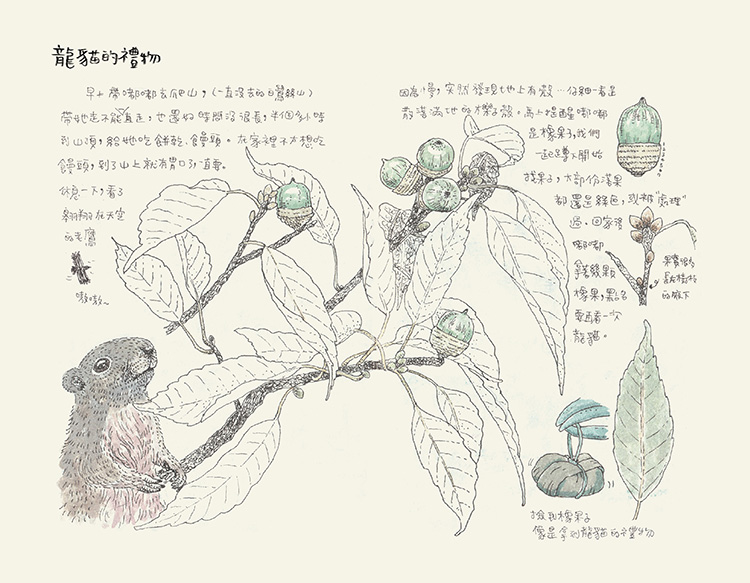 龍貓的禮物
早上帶嘟嘟去爬山，(一直沒去的白鷺鷥山)
帶她走不能直走，也還好時間沒很長，半個多小時
到山頂，給她吃餅乾、饅頭。在家裡不太想吃
饅頭，到了山上就有胃口了一直要。
休息一下，看了
翱翔在天空
的老鷹
嗷嗷~
因為小曼，突然發現地上有殼…仔細一看是
散落滿地的橡子殼。馬上提醒嘟嘟
是橡果子，我們
一起蹲下開始
撿果子，大部份落果
都還是綠色，或被"處理"
過。回家後
嘟嘟
拿幾顆
橡果，點名
要再看一次
龍貓。
果實
長在樹枝
的腋下
撿到橡果子
像是拿到龍貓的禮物